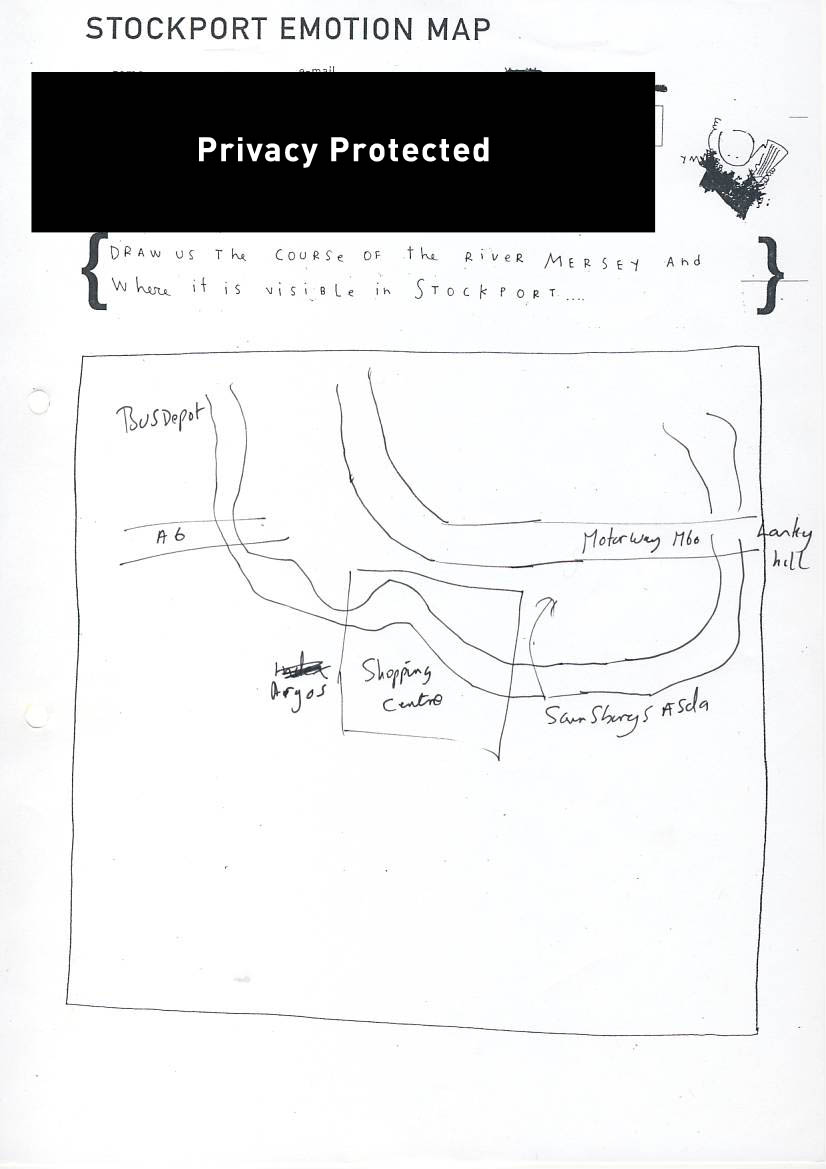 STOCKPORT EMOTION MAP
e-mail
Privacy Protected
DRAW US The COURSe OF the RiveR MERSEY And
Where it is visiBLe in STOCKPORT....
BusDepot
A6
Motorway M60
Lanky
hill
Argos
Shopping
Centre
Sainsburys Asda